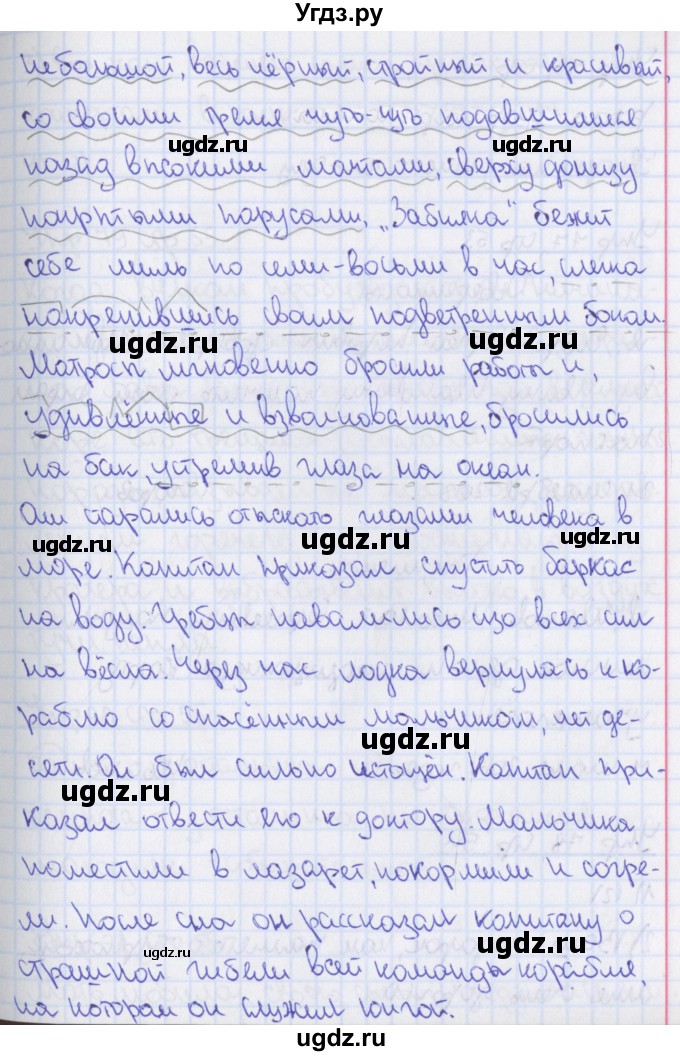 Угдз.ру
небольшой, весь чёрный, стройный и красивый,
со своими тремя чуть-чуть подавшимися
ugdz.ru ugdz.ru
назад высокими мачтами, сверху донизу
покрытыми парусами, „Забияка" бежит
ugdz.ru
себе миль по семи-восьми в час, слегка
накренившись своим подветренным боком.
ugdz.ru ugdz.ru
Матросы мгновенно бросили работы и,
удивлённые и взволнованные, бросились
ugdz.ru
на бак, устремив глаза на океан.
Они старались отыскать глазами человека в
ugdz.ru ugdz.ru ugdz.ru
море. Капитан приказал спустить баркас
на воду. Гребцы навалились изо всех сил
ugdz.ru
на вёсла. Через час лодка вернулась к ко-
раблю со спасённым мальчиком, лет де-
ugdz.ru
сяти. Он был сильно истощён. Капитан при-
ugdz.ru
казал отвести его к доктору. Мальчика
поместили в лазарет, покормили и согре-
ugdz.ru
ли. После сна он рассказал капитану о
ugdz.ru
страшной гибели всей команды корабля,
ugdz.ru
на котором он служил юнгой.
ugdz.ru